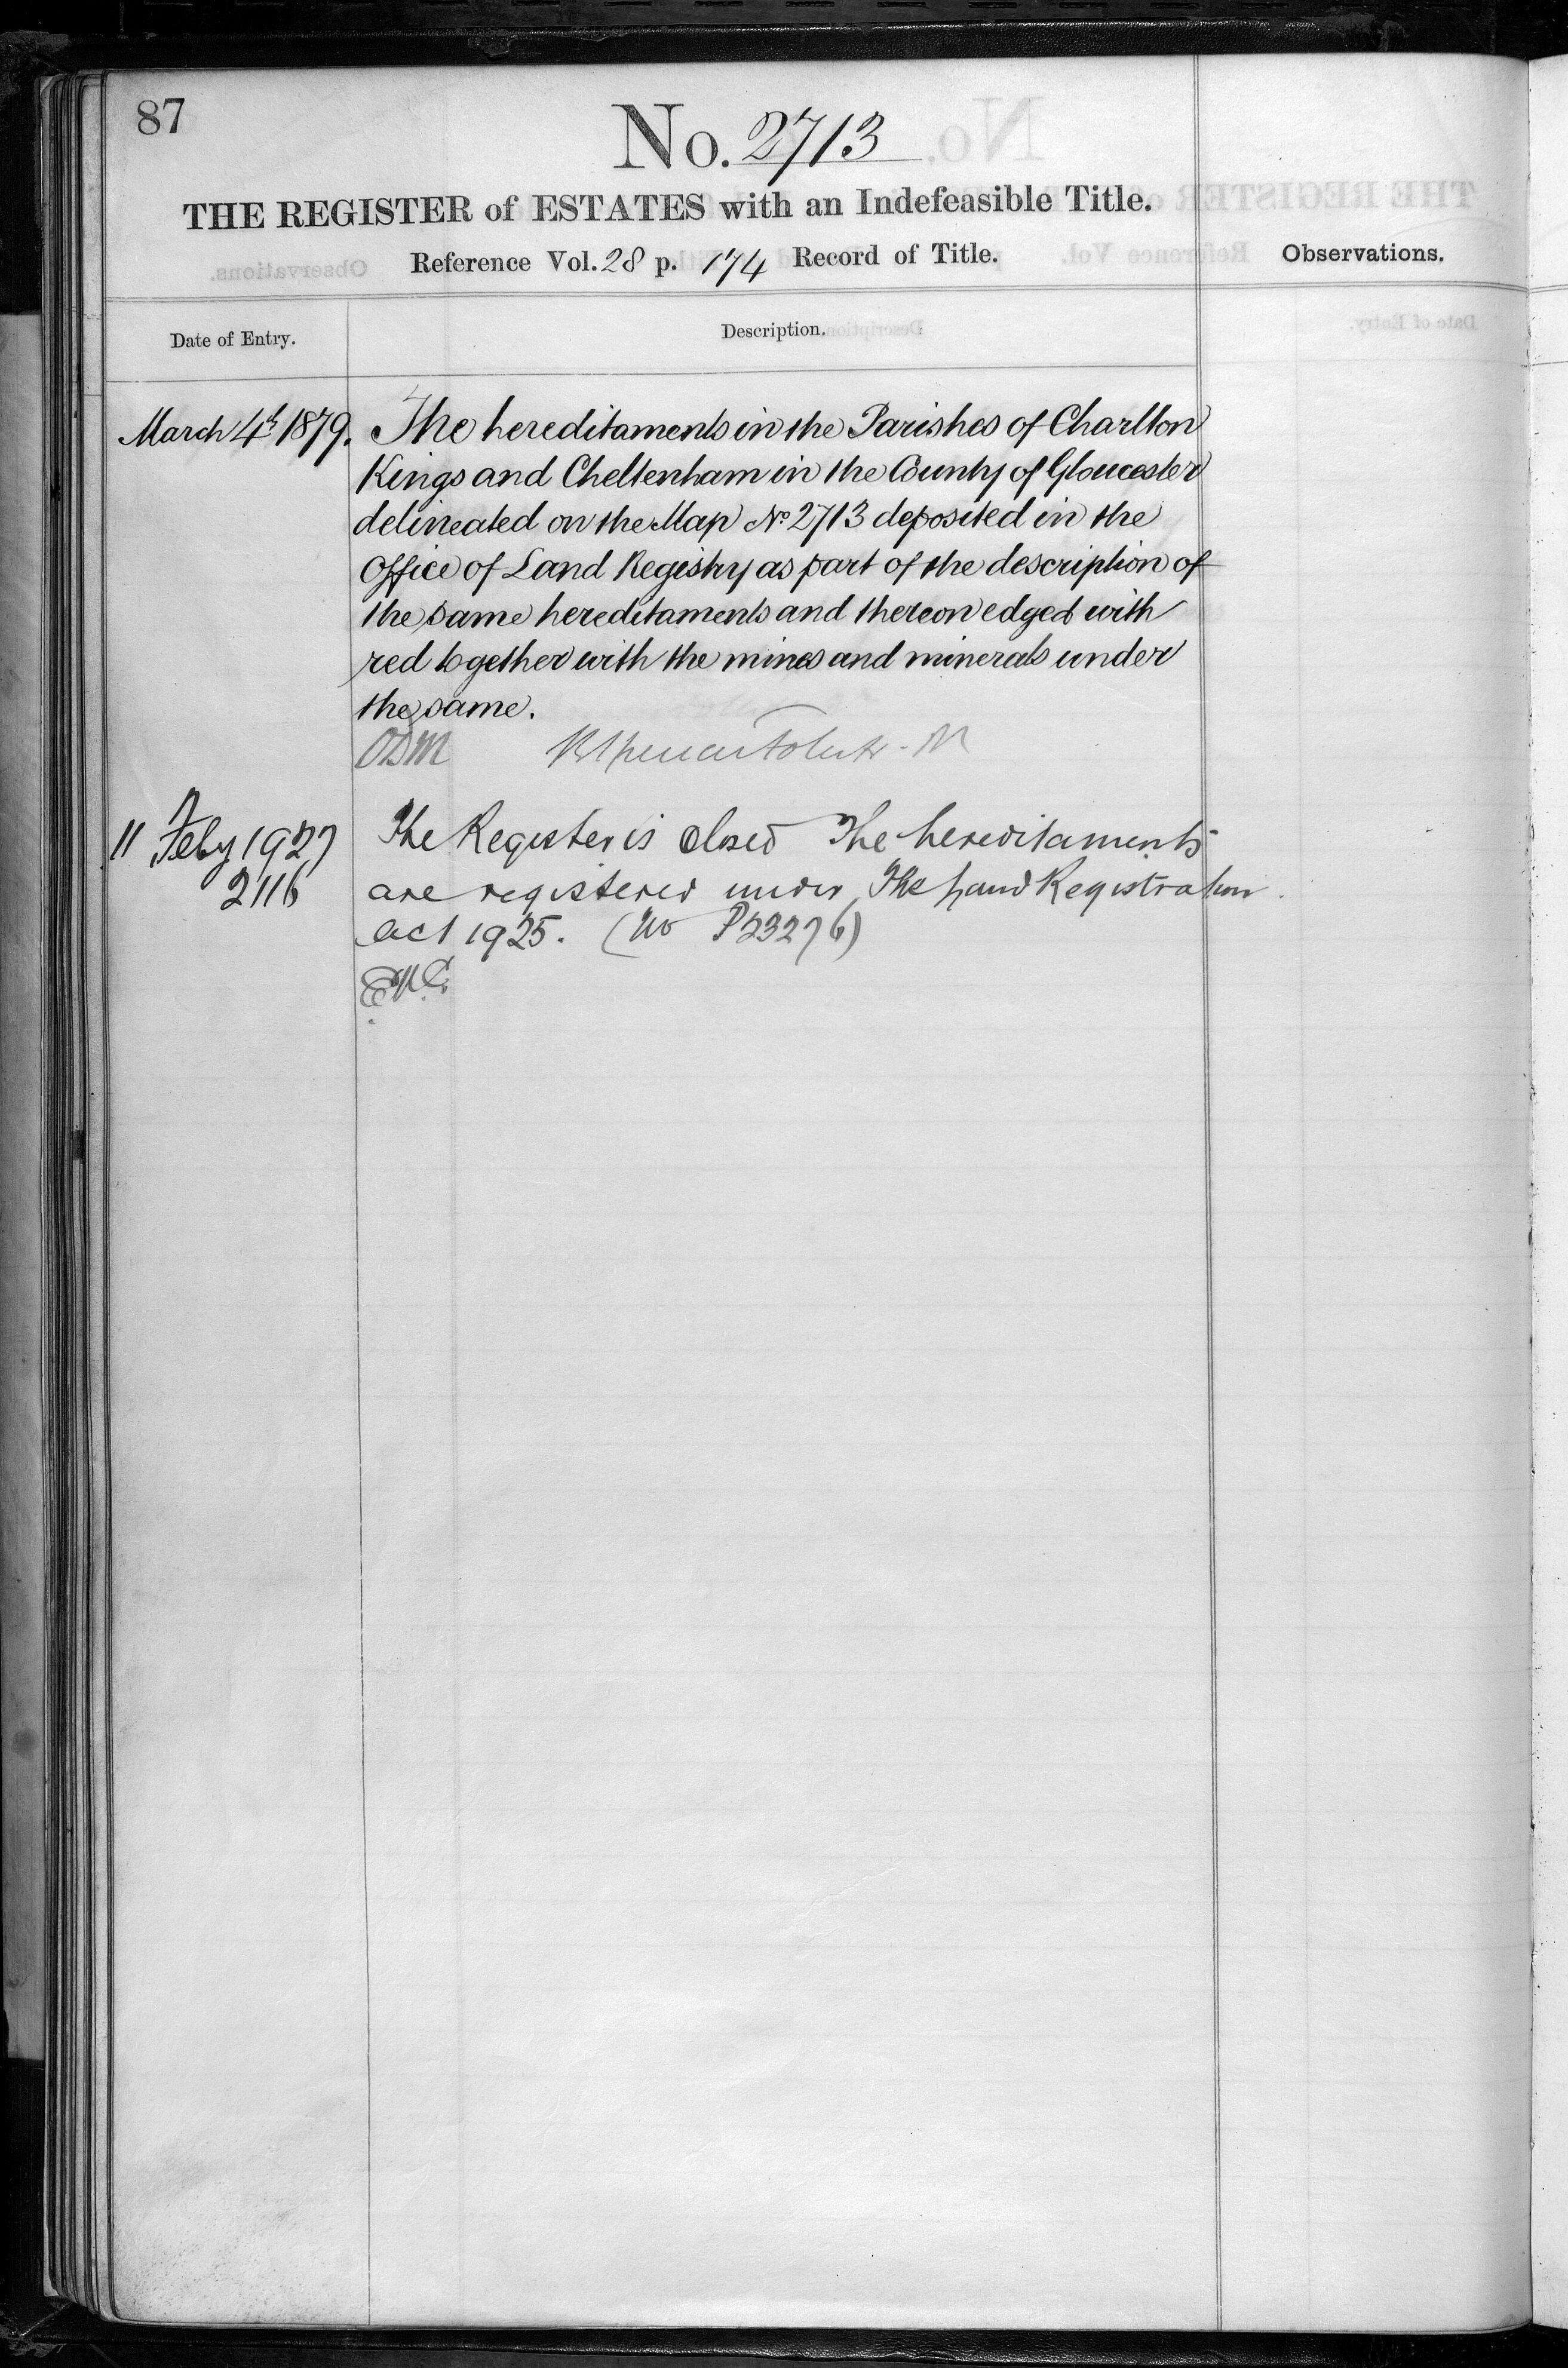 87
No. 2713
THE REGISTER of ESTATES with an Indefeasible Title.
Reference Vol. 28 p. 174 Record of Title.
Observations.
Date of Entry.
Description.
March 4th 1879.
The hereditaments in the Parishes of Charlton
Kings and Cheltenham in the County of Gloucester
delineated on the Map No 2713 deposited in the
Office of Land Registry as part of the description of
the same hereditaments and thereon edged with
red together with the mines and minerals under
the same.
11 Feby 1927
2116
The Register is closed The hereditaments
are registered under The Land Registration
Act 1925. (No P23276)